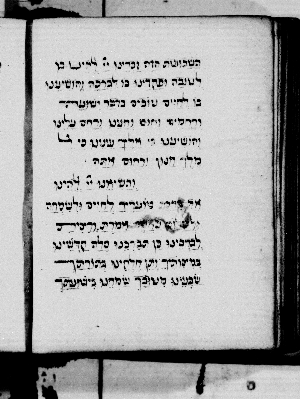 השבועות הזה זכרינו יי להינו בו
לטובה ופקדינו בו לברכה והושיעינו
בו לחיים טובים בדבר ישועה
ורחמים וחוס וחננו ורחם עלינו
והושיענו כי אליך עינינו כי
מלך חנון ורחום אתה
והשיאנו יי להינו
את מועדיך לחיים ולשמחה
לברכינו כן תברכנו סלה קדשינו
במצותיך ותן חלקינו בתורתיך
שבעינו מטובך שמחנו בישועתך